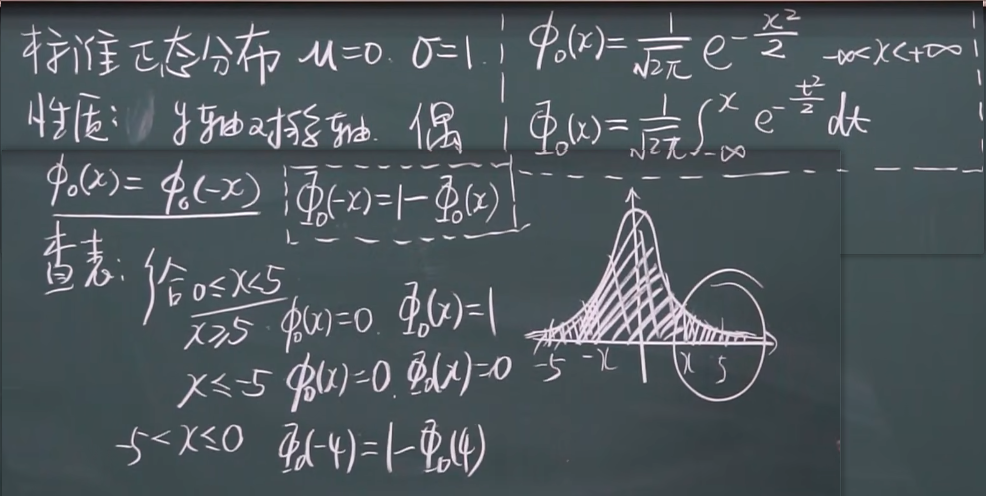 标准正态分布 μ=0. σ=1.
φ₀(x)= 1/√2π e^(-x²/2) -∞<x<+∞
性质: y轴对称轴. 偶
Φ₀(x)= 1/√2π ∫_{-∞}^{x} e^(-t²/2) dt
φ₀(x)=φ₀(-x) Φ₀(-x)=1-Φ₀(x)
查表: 给 0≤x<5
x≥5 φ₀(x)=0. Φ₀(x)=1
x≤-5 φ₀(x)=0. Φ₀(x)=0
-5<x≤0 Φ₀(-4)=1-Φ₀(4)
-5 -x x 5